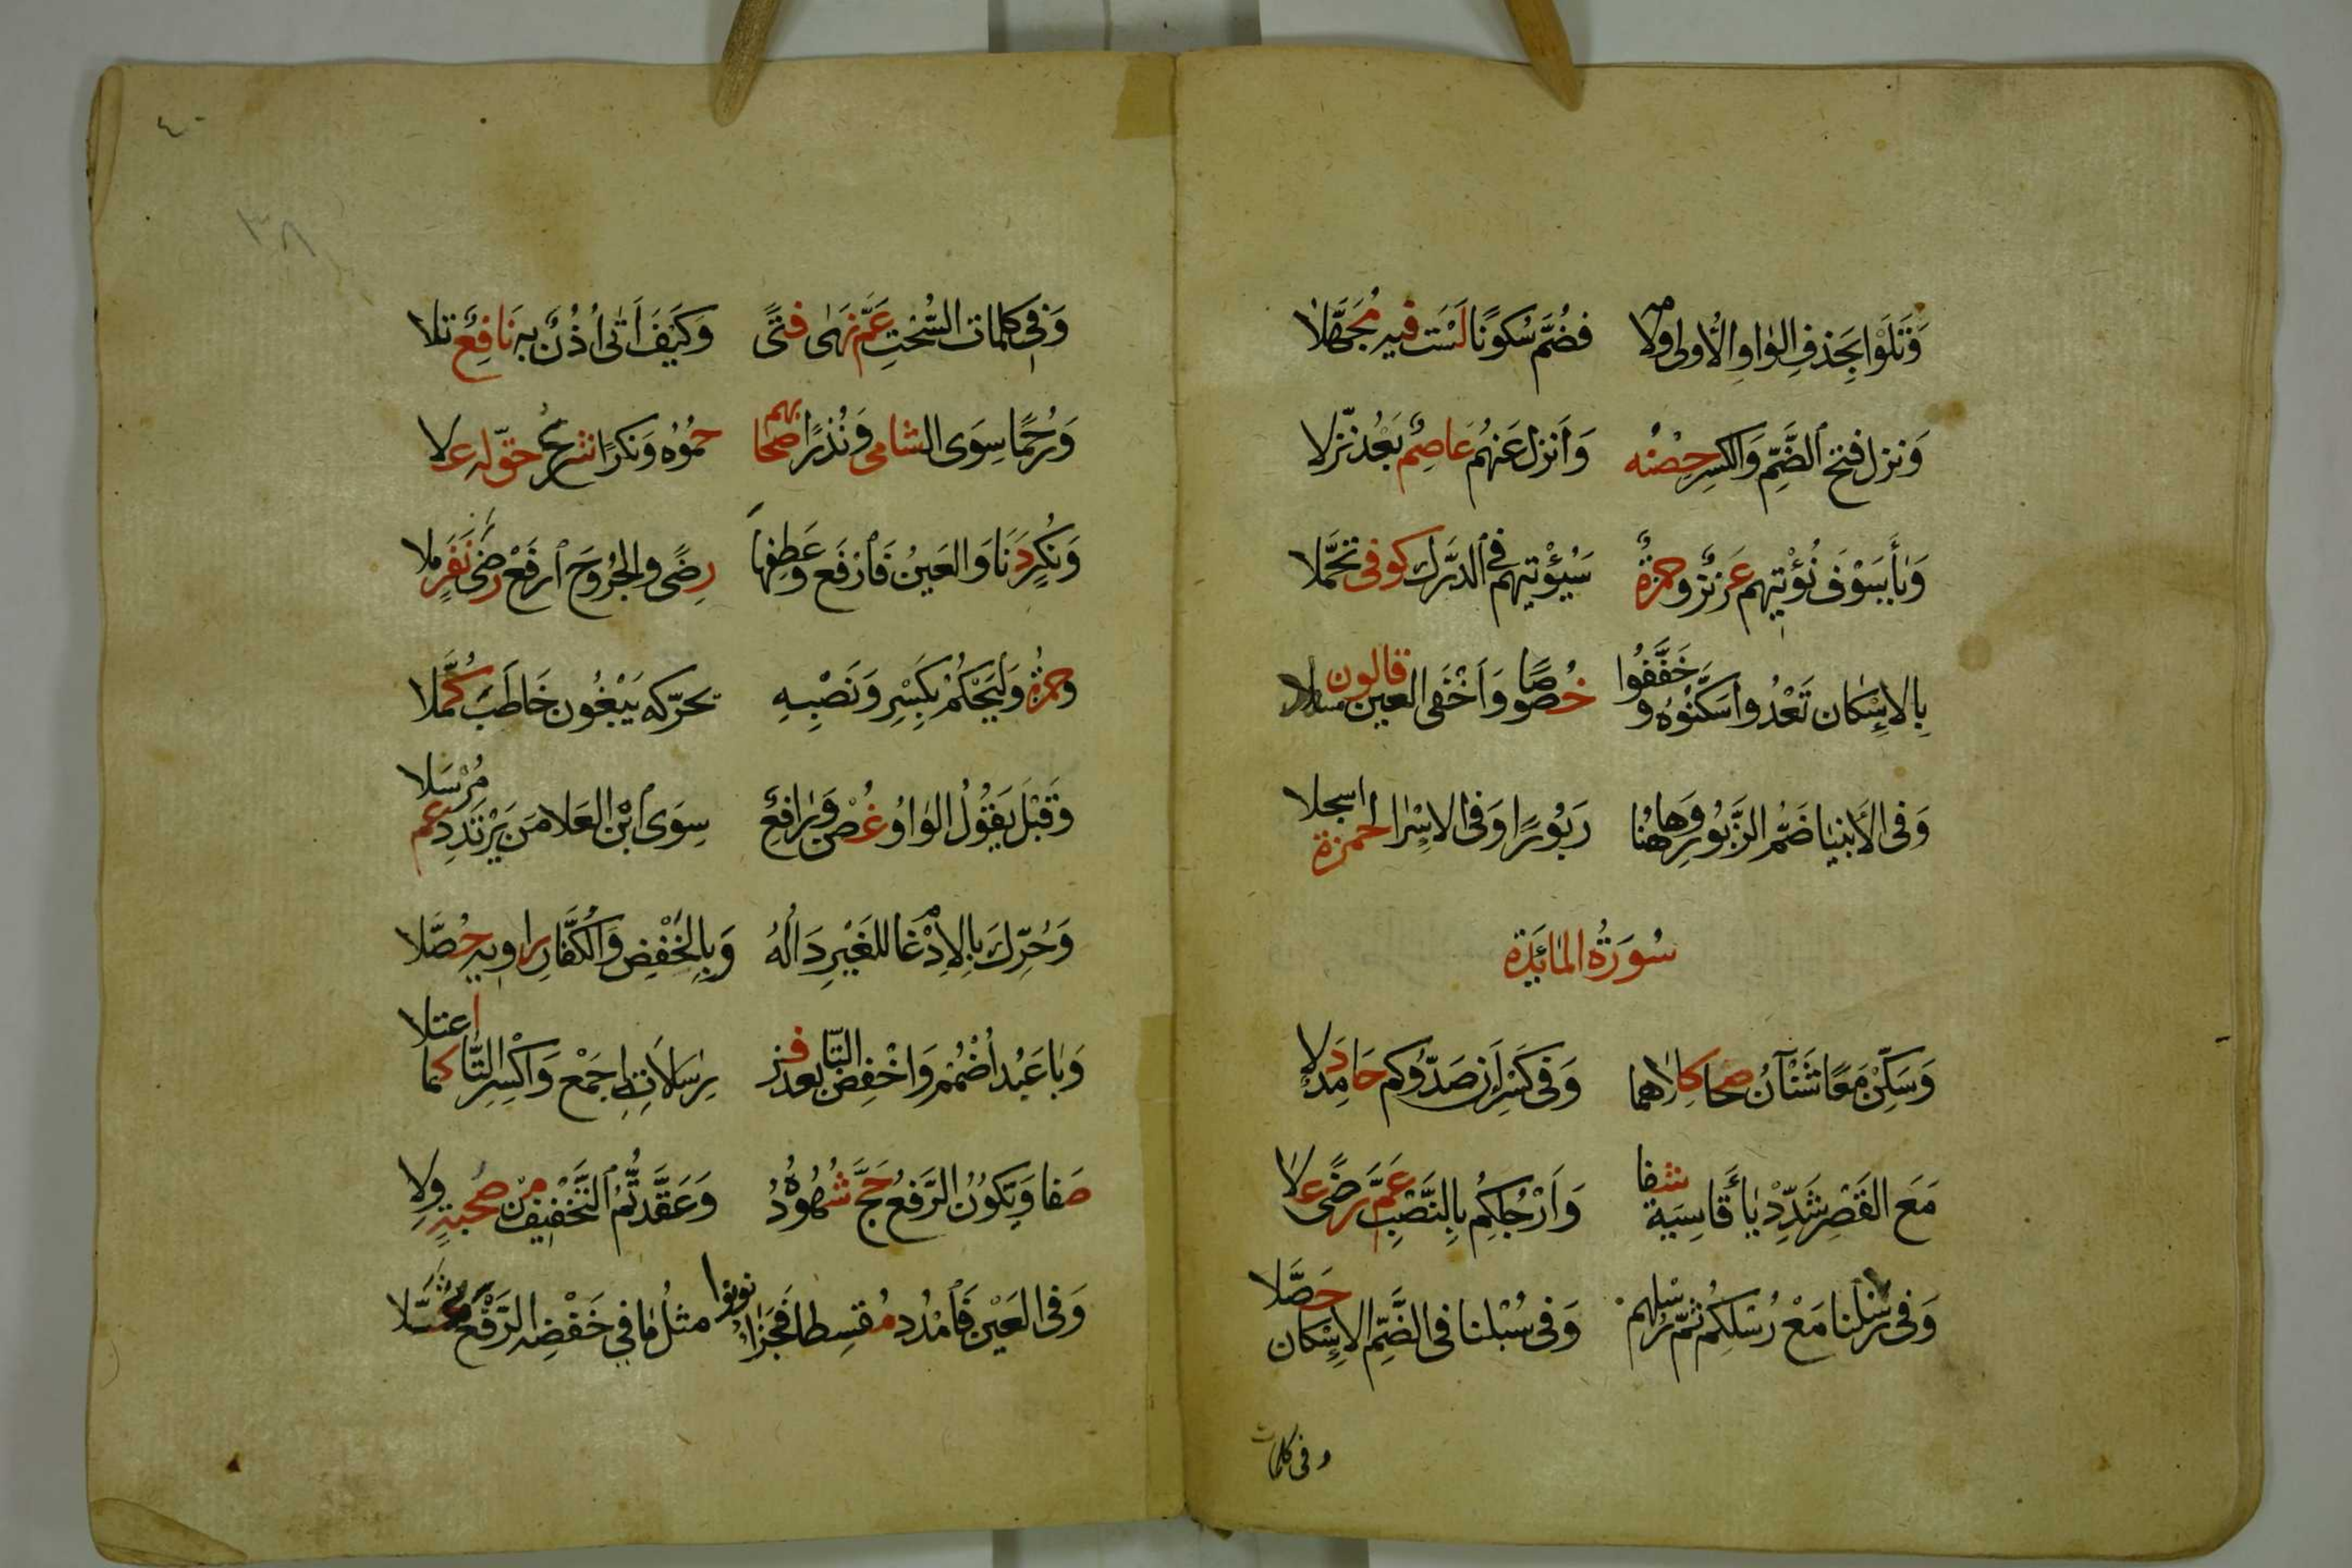 وَتَلْوُوا بِحَذْفِ الوَاوِ الأُولى وَلَامَهُ فَضُمَّ سُكُونًا لَسْتَ فِيهِ مُجَهَّلَا
وَنزل فتح الضَّمِّ وَالكسرِ حِصْنُه وَأنزل عَنهُم عَاصِمٌ بَعْدُ نزّلا
وَيَا سَوْفَ نُؤْتِيهم عَزِيزٌ وَحمزةٌ سَيُؤْتِيهِم فِي الدَّرْك كوفى تحَمَّلا
بِالاِسْكان تَعْدُوا سَكَّنُوهُ وخَفَّفُوا خُصُوصًا وَأَخْفَى العين قالون مسهلا
وَفى الأنبيا ضَمُّ الزَّبُورِ وَهاهُنا زَبُورًا وَفى الاِسْرا لحمزة اسجلا
سُورَةُ المَائِدَة
وَسَكِّنْ مَعًا شَنْآنُ صَحا كِلاهما وَفى كَسْرِ أَن صَدّوكم حَامِدٌ دَلا
مَعَ القَصْرِ شَدِّدْ يَا قَاسِيَةً شفا وَأَرْجُلِكُم بِالنَّصْبِ عَمَّ رِضًى عَلا
وَفى رُسْلنا مَعْ رُسْلِكُم ثمّ رُسْلهم وَفى سُبْلنا فى الضَّمِّ الاِسْكان حُصِّلا
وفى كلمات
٤٠
٣٨
وَفِي كلمات السُّحْتِ عَمَّ نُهَى فَتًى وَكَيْفَ أَتَى أُذْنٌ بِهِ نَافِعٌ تلا
وَرُحْمًا سِوَى الشامى وَنُذْرًا صحابهم حَمَوْهُ وَنكرًا شرعُ حقّ له علا
وَنُكْرٍ دَنَا وَالعَيْنُ فَارْفَع وَعَطفها رِضًى والجُرُوحَ ارفَعْ رِضَى نَفَرٍ ملا
وحمزةُ وَلْيَحْكُم بِكَسْرٍ وَنَصْبِهِ يحرّكه يَبْغُون خَاطَبَ كُمَّلا
وَقَبْلَ يَقُولُ الوَاوُ غُصْنٌ وَرَافِعٌ سِوَى ابْنِ العَلا مَن يَرْتَدِدْ عَمَّ مُرْسَلا
وَحُرِّكَ بِالاِدْغَامِ للغَيْرِ دَالُهُ وَبِالخَفْضِ وَالكُفَّارِ رَاوِيهِ حَصَّلا
وَبَا عَبُدَ اضْمُمْ وَاخْفِضِ التّا بعد فز رِسَالَاتِهِ اجمَعْ وَاكْسِرِ التَّا كما اعتلا
صَفا وَتَكُونُ الرَّفْعُ حَجَّ شُهُودُهُ وَعَقَّدْتُمُ التَّخْفِيفُ مِنْ صُحْبَةٍ وِلا
وَفى العَيْنِ فَامْدُد مُقسِطا فَجَزَاءُ نونوا مثلُ ما في خَفْضِهِ الرَّفْعُ ثُمَّلا